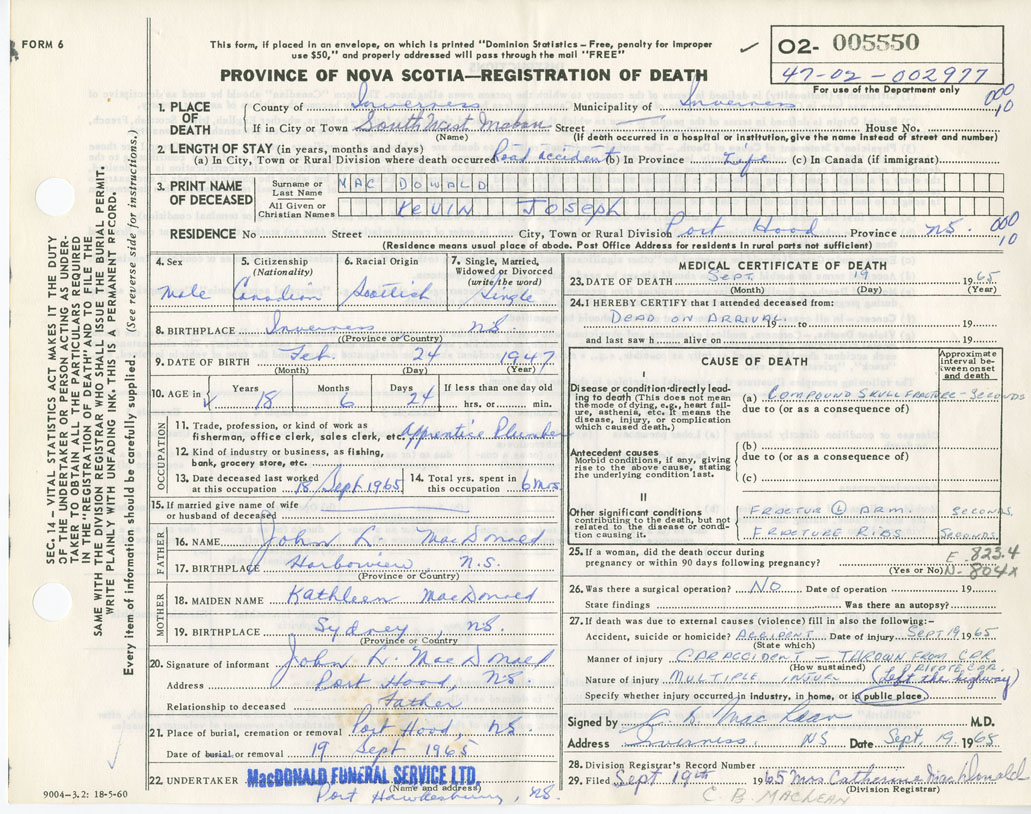 FORM 6
This form, if placed in an envelope, on which is printed "Dominion Statistics – Free, penalty for improper
use $50," and properly addressed will pass through the mail "FREE"
✓ 02- 005550
47-02-002977
PROVINCE OF NOVA SCOTIA—REGISTRATION OF DEATH
For use of the Department only
1. PLACE OF DEATH
County of Inverness Municipality of Inverness 000 10
If in City or Town South West Mabou Street House No.
(Name) (If death occurred in a hospital or institution, give the name instead of street and number)
2. LENGTH OF STAY (in years, months and days)
(a) In City, Town or Rural Division where death occurred Road accident (b) In Province Life (c) In Canada (if immigrant)
3. PRINT NAME OF DECEASED
Surname or Last Name MAC DONALD
All Given or Christian Names KEVIN JOSEPH
RESIDENCE No Street City, Town or Rural Division Port Hood Province N.S. 000 10
(Residence means usual place of abode. Post Office Address for residents in rural parts not sufficient)
4. Sex
Male
5. Citizenship (Nationality)
Canadian
6. Racial Origin
Scottish
7. Single, Married, Widowed or Divorced (write the word)
Single
8. BIRTHPLACE Inverness N.S.
(Province or Country)
9. DATE OF BIRTH Feb. 24 1947
(Month) (Day) (Year)
10. AGE in
Years Months Days If less than one day old
18 6 24 hrs. or min.
OCCUPATION
11. Trade, profession, or kind of work as
fisherman, office clerk, sales clerk, etc. Apprentice Plumber
12. Kind of industry or business, as fishing,
bank, grocery store, etc.
13. Date deceased last worked
at this occupation 18 Sept 1965
14. Total yrs. spent in
this occupation 6 mos
15. If married give name of wife
or husband of deceased
FATHER
16. NAME John L. MacDonald
17. BIRTHPLACE Harbourview, N.S.
(Province or Country)
MOTHER
18. MAIDEN NAME Kathleen MacDonald
19. BIRTHPLACE Sydney, N.S.
(Province or Country)
20. Signature of informant John L. MacDonald
Address Port Hood, N.S.
Relationship to deceased Father
21. Place of burial, cremation or removal Port Hood, N.S.
Date of burial or removal 19 Sept 1965
22. UNDERTAKER MacDONALD FUNERAL SERVICE LTD.
(Name and address)
Port Hawkesbury, N.S.
9004-3.2: 18-5-60
MEDICAL CERTIFICATE OF DEATH
23. DATE OF DEATH Sept. 19 1965
(Month) (Day) (Year)
24. I HEREBY CERTIFY that I attended deceased from:
DEAD ON ARRIVAL 19 to 19
and last saw h alive on 19
CAUSE OF DEATH
Approximate interval between onset and death
I
Disease or condition directly lead-
ing to death (This does not mean
the mode of dying, e.g., heart fail-
ure, asthenia, etc. It means the
disease, injury, or complication
which caused death.
(a) COMPOUND SKULL FRACTURE – SECONDS
due to (or as a consequence of)
Antecedent causes
Morbid conditions, if any, giving
rise to the above cause, stating
the underlying condition last.
(b)
due to (or as a consequence of)
(c)
II
Other significant conditions
contributing to the death, but not
related to the disease or condi-
tion causing it.
FRACTUR (L) ARM. SECONDS.
FRACTURE RIBS SECONDS.
25. If a woman, did the death occur during
pregnancy or within 90 days following pregnancy?
(Yes or No)
E-823.4
N-804x
26. Was there a surgical operation? NO Date of operation 19
State findings Was there an autopsy?
27. If death was due to external causes (violence) fill in also the following:-
Accident, suicide or homicide? ACCIDENT Date of injury SEPT. 19 1965
(State which)
Manner of injury CAR ACCIDENT – THROWN FROM CAR
(How sustained) PRIVATE CAR.
Nature of injury MULTIPLE INJUR (left the highway)
Specify whether injury occurred in industry, in home, or in public place
Signed by C. B. MacLean M.D.
Address Inverness, NS Date Sept. 19 1965
28. Division Registrar's Record Number
29. Filed Sept 19th 1965 Mrs Catherine MacDonald
(Division Registrar)
C. B. MACLEAN
SEC. 14 – VITAL STATISTICS ACT MAKES IT THE DUTY
OF THE UNDERTAKER OR PERSON ACTING AS UNDER-
TAKER TO OBTAIN ALL THE PARTICULARS REQUIRED
IN THE "REGISTRATION OF DEATH" AND TO FILE THE
SAME WITH THE DIVISION REGISTRAR WHO SHALL ISSUE THE BURIAL PERMIT.
WRITE PLAINLY WITH UNFADING INK. THIS IS A PERMANENT RECORD.
Every item of information should be carefully supplied. (See reverse side for instructions.)